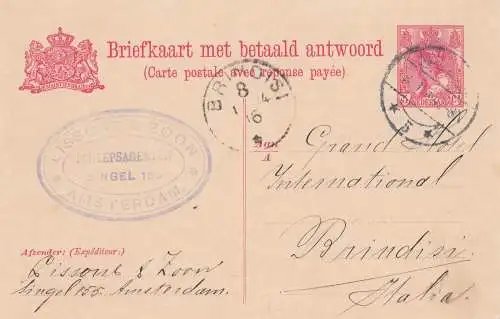 Briefkaart met betaald antwoord
(Carte postale avec réponse payée)
BRINDISI
8
6
LISSONE & ZOON
SCHEEPSAGENTEN
SINGEL 155
AMSTERDAM
5
Aan
A
Grand Hotel
International
Brindisi
Italia.
Afzender: (Expéditeur:)
Lissone & Zoon
Singel 155. Amsterdam.